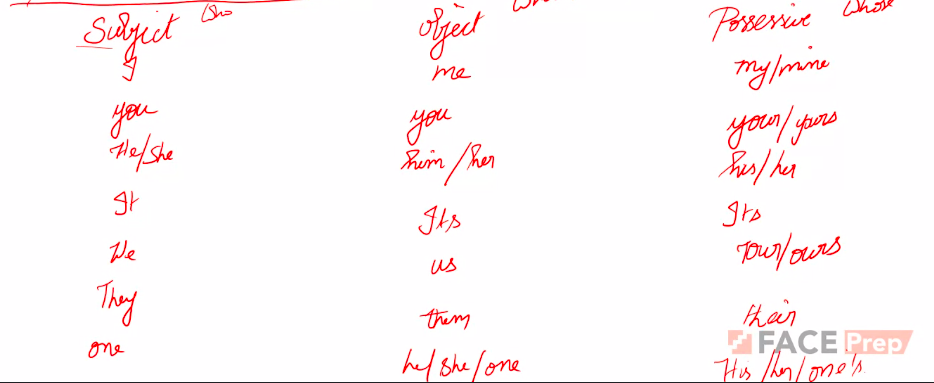 Who Who Whose
Subject Object Possessive
I me my/mine
you you your/yours
He/she him/her his/her
It Its Its
We us your/ours
They them their
one he/she/one His/her/one's
FACE Prep